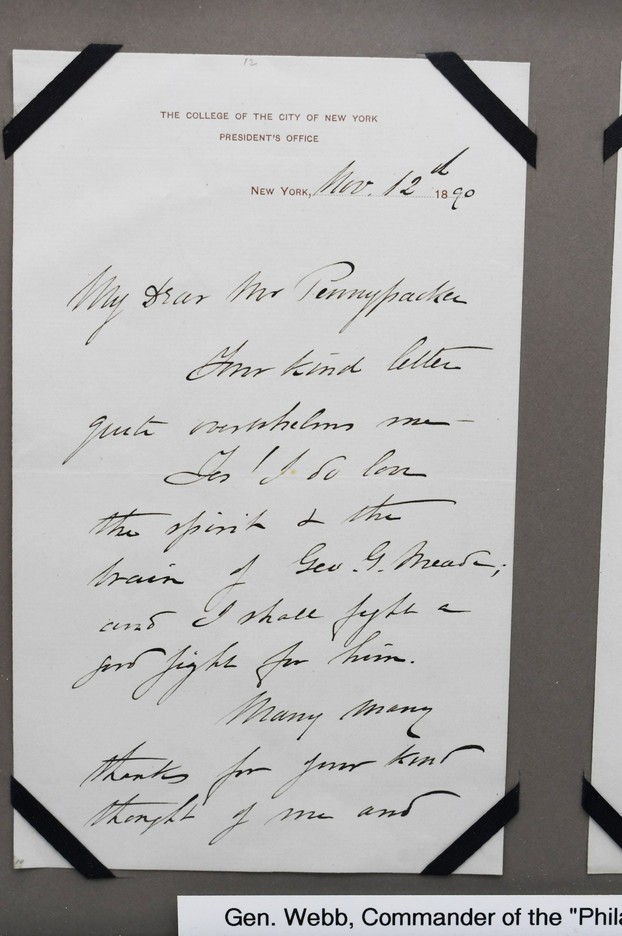 12
THE COLLEGE OF THE CITY OF NEW YORK
PRESIDENT'S OFFICE
NEW YORK, Nov. 12th 1890
My Dear Mr Pennypacker
Your kind letter
quite overwhelms me —
Yes! I do love
the spirit & the
brain of Geo. G. Meade;
and I shall fight a
good fight for him.
Many many
thanks for your kind
thought of me and
Gen. Webb, Commander of the "Phila